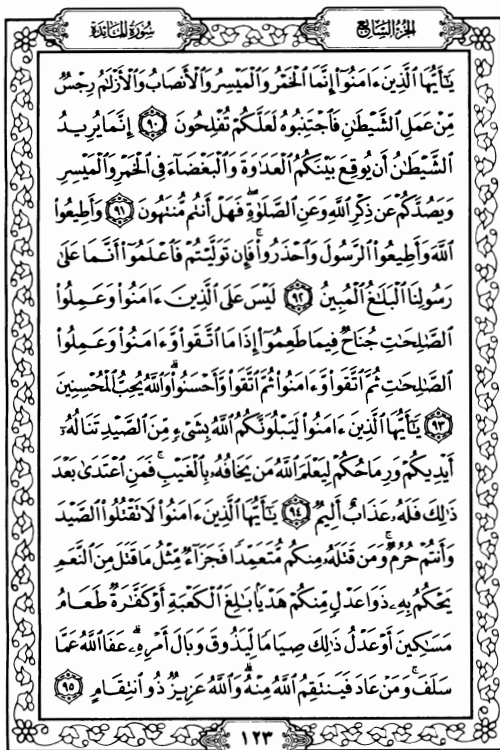 الجزء السابع
سورة المائدة
يَٰٓأَيُّهَا ٱلَّذِينَ ءَامَنُوٓاْ إِنَّمَا ٱلۡخَمۡرُ وَٱلۡمَيۡسِرُ وَٱلۡأَنصَابُ وَٱلۡأَزۡلَٰمُ رِجۡسٞ
مِّنۡ عَمَلِ ٱلشَّيۡطَٰنِ فَٱجۡتَنِبُوهُ لَعَلَّكُمۡ تُفۡلِحُونَ ٩٠ إِنَّمَا يُرِيدُ
ٱلشَّيۡطَٰنُ أَن يُوقِعَ بَيۡنَكُمُ ٱلۡعَدَٰوَةَ وَٱلۡبَغۡضَآءَ فِي ٱلۡخَمۡرِ وَٱلۡمَيۡسِرِ
وَيَصُدَّكُمۡ عَن ذِكۡرِ ٱللَّهِ وَعَنِ ٱلصَّلَوٰةِۖ فَهَلۡ أَنتُم مُّنتَهُونَ ٩١ وَأَطِيعُواْ
ٱللَّهَ وَأَطِيعُواْ ٱلرَّسُولَ وَٱحۡذَرُواْۚ فَإِن تَوَلَّيۡتُمۡ فَٱعۡلَمُوٓاْ أَنَّمَا عَلَىٰ
رَسُولِنَا ٱلۡبَلَٰغُ ٱلۡمُبِينُ ٩٢ لَيۡسَ عَلَى ٱلَّذِينَ ءَامَنُواْ وَعَمِلُواْ
ٱلصَّٰلِحَٰتِ جُنَاحٞ فِيمَا طَعِمُوٓاْ إِذَا مَا ٱتَّقَواْ وَّءَامَنُواْ وَعَمِلُواْ
ٱلصَّٰلِحَٰتِ ثُمَّ ٱتَّقَواْ وَّءَامَنُواْ ثُمَّ ٱتَّقَواْ وَّأَحۡسَنُواْۗ وَٱللَّهُ يُحِبُّ ٱلۡمُحۡسِنِينَ
٩٣ يَٰٓأَيُّهَا ٱلَّذِينَ ءَامَنُواْ لَيَبۡلُوَنَّكُمُ ٱللَّهُ بِشَيۡءٖ مِّنَ ٱلصَّيۡدِ تَنَالُهُۥٓ
أَيۡدِيكُمۡ وَرِمَاحُكُمۡ لِيَعۡلَمَ ٱللَّهُ مَن يَخَافُهُۥ بِٱلۡغَيۡبِۚ فَمَنِ ٱعۡتَدَىٰ بَعۡدَ
ذَٰلِكَ فَلَهُۥ عَذَابٌ أَلِيمٞ ٩٤ يَٰٓأَيُّهَا ٱلَّذِينَ ءَامَنُواْ لَا تَقۡتُلُواْ ٱلصَّيۡدَ
وَأَنتُمۡ حُرُمٞۚ وَمَن قَتَلَهُۥ مِنكُم مُّتَعَمِّدٗا فَجَزَآءٞ مِّثۡلُ مَا قَتَلَ مِنَ ٱلنَّعَمِ
يَحۡكُمُ بِهِۦ ذَوَا عَدۡلٖ مِّنكُمۡ هَدۡيَۢا بَٰلِغَ ٱلۡكَعۡبَةِ أَوۡ كَفَّٰرَةٞ طَعَامُ
مَسَٰكِينَ أَوۡ عَدۡلُ ذَٰلِكَ صِيَامٗا لِّيَذُوقَ وَبَالَ أَمۡرِهِۦۗ عَفَا ٱللَّهُ عَمَّا
سَلَفَۚ وَمَنۡ عَادَ فَيَنتَقِمُ ٱللَّهُ مِنۡهُۚ وَٱللَّهُ عَزِيزٞ ذُو ٱنتِقَامٍ ٩٥
١٢٣